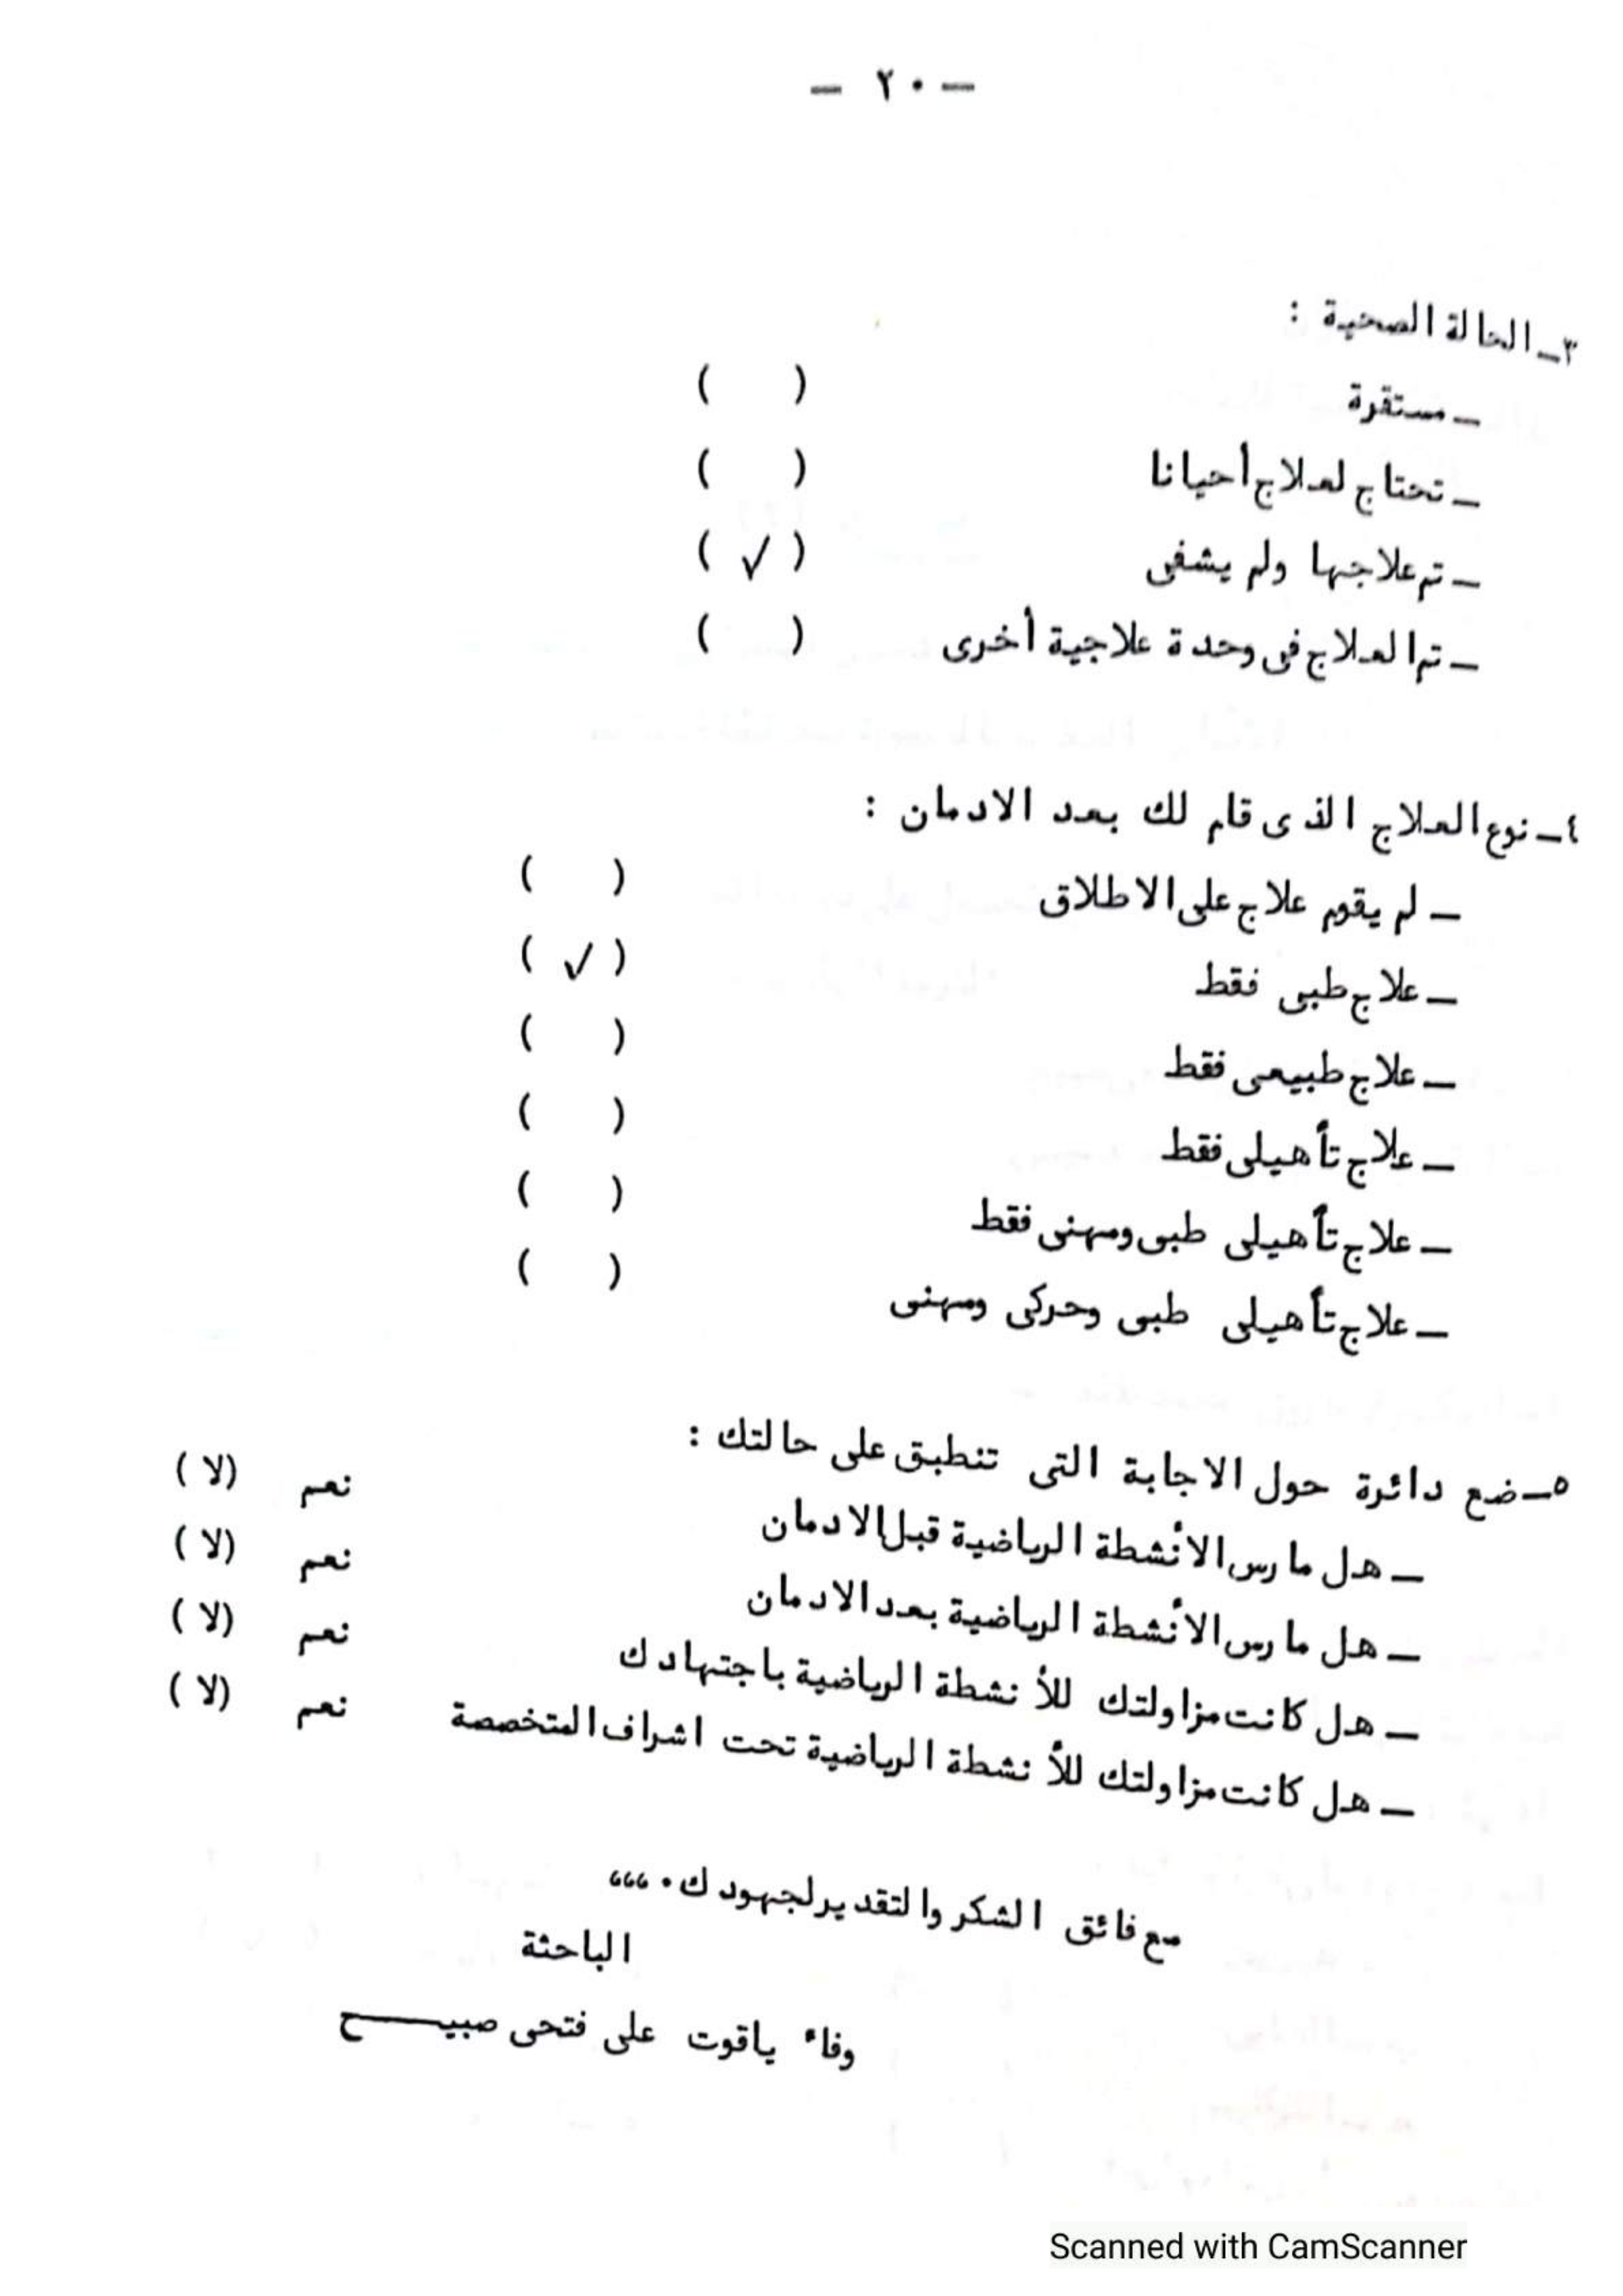 — ٢٠ —
٣ـ الحالة الصحية :
ـ مستقرة ( )
ـ تحتاج لعلاج أحيانا ( )
ـ تم علاجها ولم يشفى ( √ )
ـ تم العلاج فى وحدة علاجية أخرى ( )
٤ـ نوع العلاج الذى قام لك بعد الادمان :
ـ لم يقوم علاج على الاطلاق ( )
ـ علاج طبى فقط ( √ )
ـ علاج طبيعى فقط ( )
ـ علاج تأهيلى فقط ( )
ـ علاج تأهيلى طبى ومهنى فقط ( )
ـ علاج تأهيلى طبى وحركى ومهنى ( )
٥ـ ضع دائرة حول الاجابة التى تنطبق على حالتك :
ـ هل مارس الأنشطة الرياضية قبل الادمان نعم (لا )
ـ هل مارس الأنشطة الرياضية بعد الادمان نعم (لا )
ـ هل كانت مزاولتك للأنشطة الرياضية باجتهادك نعم (لا )
ـ هل كانت مزاولتك للأنشطة الرياضية تحت اشراف المتخصصة نعم (لا )
مع فائق الشكر والتقدير لجهودك ٠ ،،،،
الباحثة
وفاء ياقوت على فتحى صبيـــح
Scanned with CamScanner